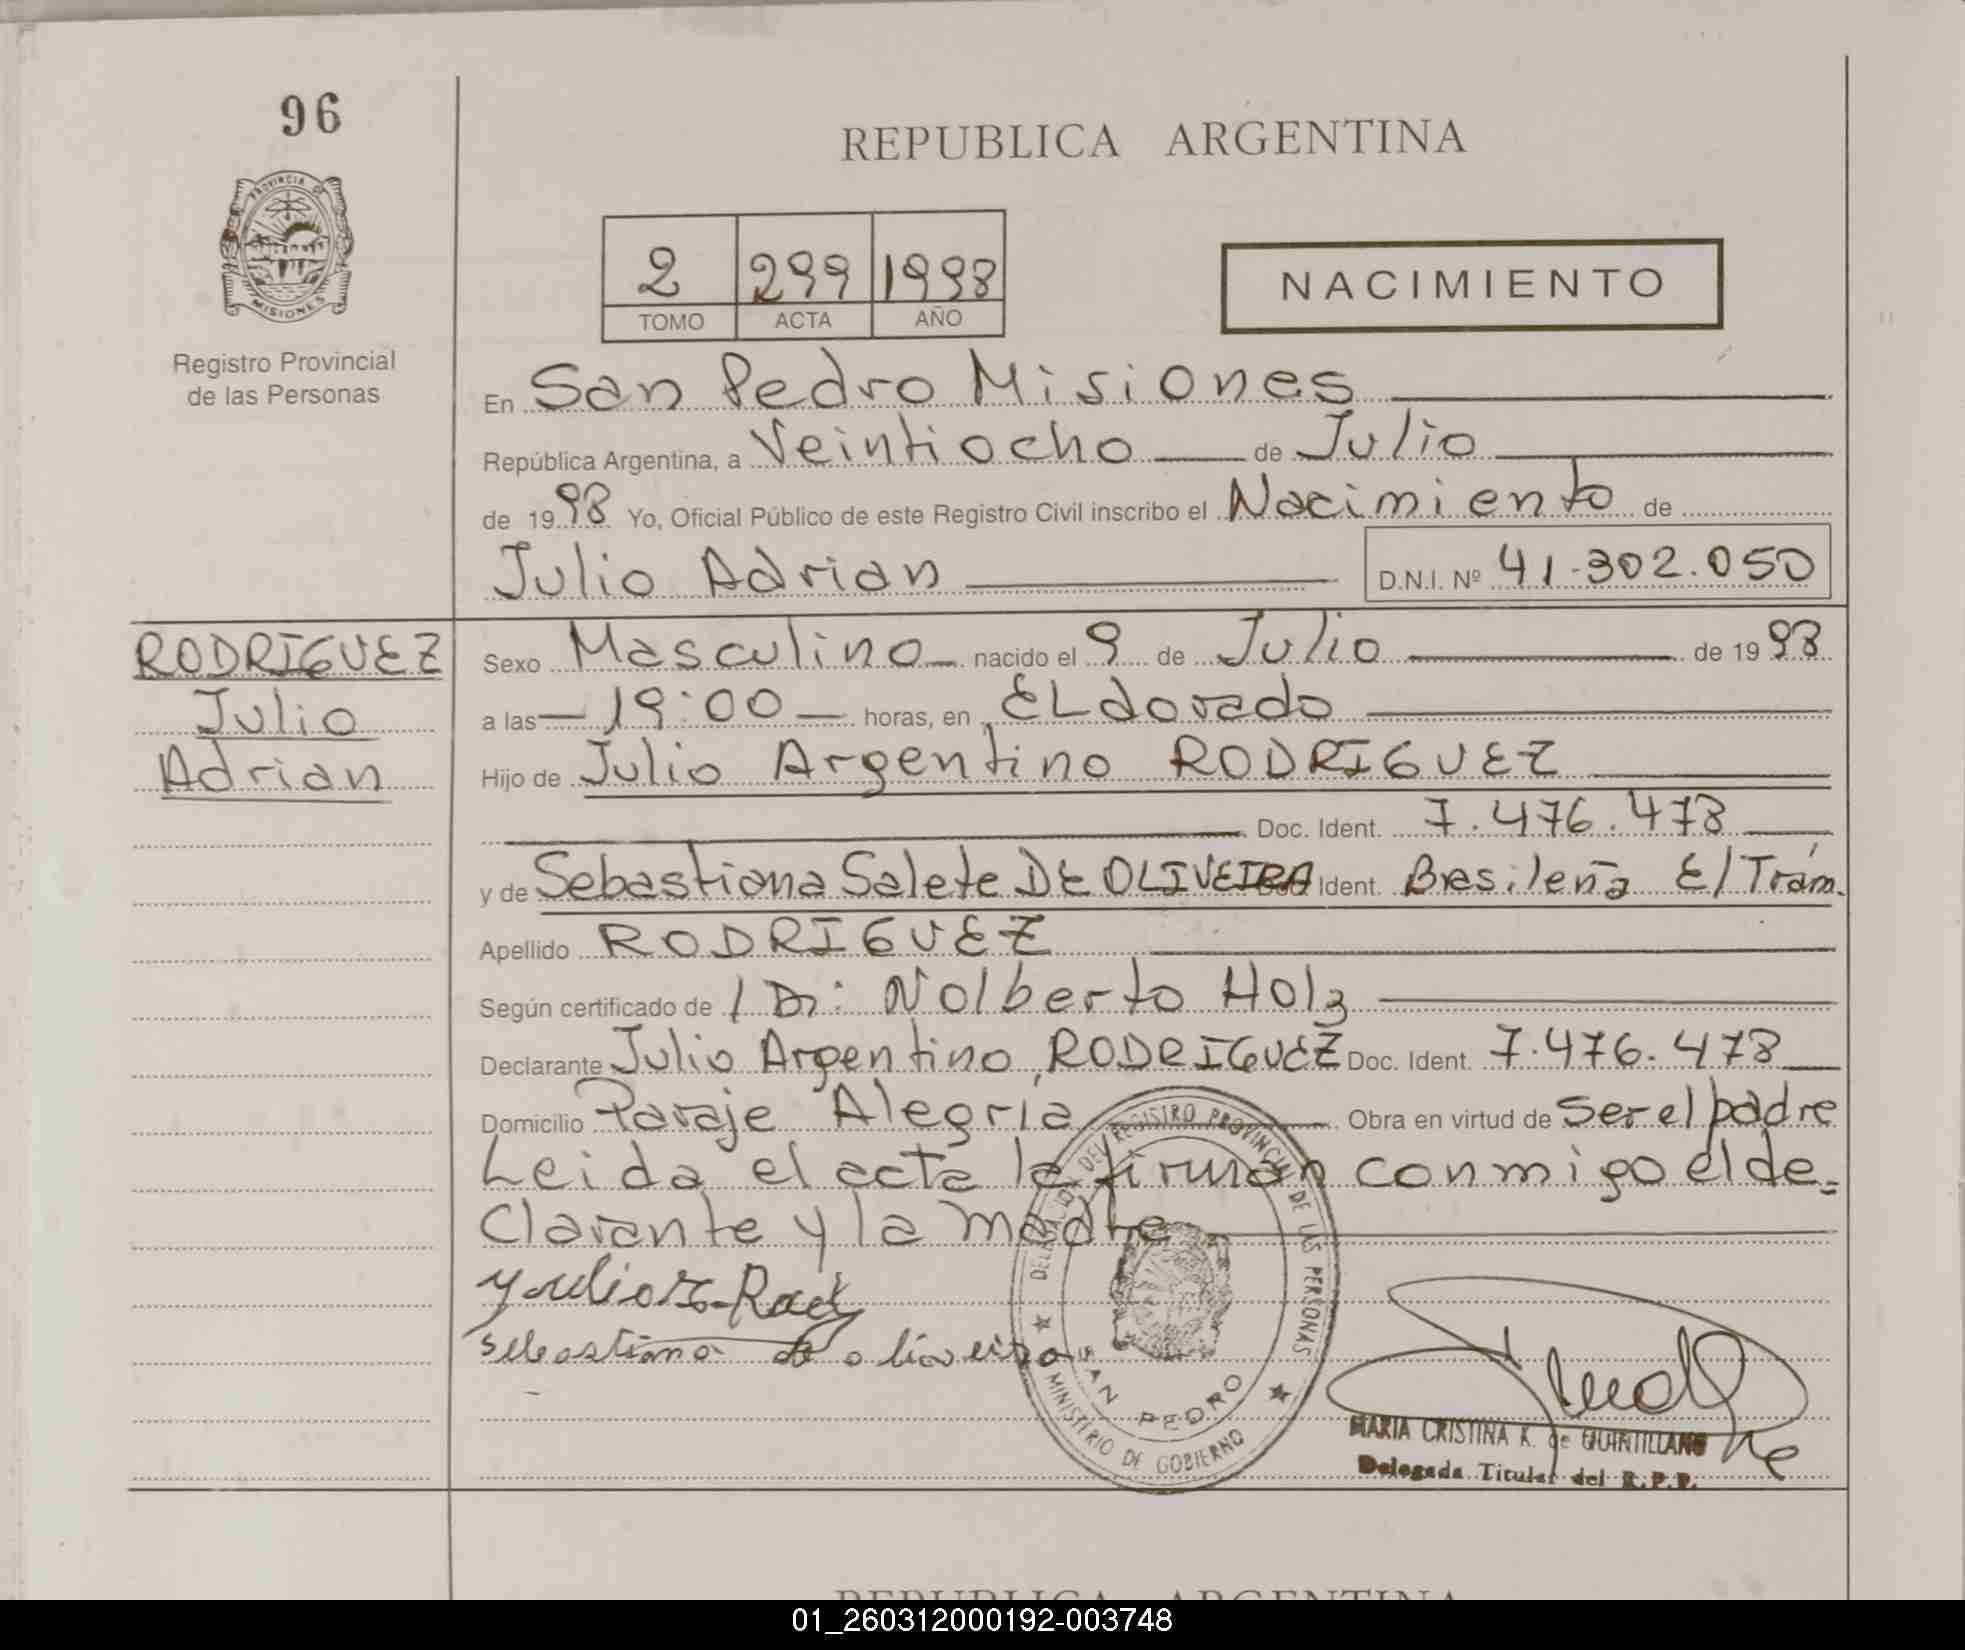 96
REPUBLICA ARGENTINA
PROVINCIA DE
MISIONES
Registro Provincial
de las Personas
2 299 1998
TOMO ACTA AÑO
NACIMIENTO
En San Pedro Misiones
República Argentina, a Veintiocho de Julio
de 1998 Yo, Oficial Público de este Registro Civil inscribo el Nacimiento de
Julio Adrian D.N.I. Nº 41.302.050
RODRIGUEZ
Julio
Adrian
Sexo Masculino nacido el 9 de Julio de 1998
a las 19:00 horas, en ELdorado
Hijo de Julio Argentino RODRIGUEZ
Doc. Ident. 7.476.478
y de Sebastiana Salete DE OLIVEIRA Ident. Brasileña E/Trám.
Apellido RODRIGUEZ
Según certificado de / Dr: Nolberto Holz
Declarante Julio Argentino RODRIGUEZ Doc. Ident. 7.476.478
Domicilio Paraje Alegría Obra en virtud de Ser el padre
Leida el acta la firman conmigo el de=
clarante y la madre
Sebastiana de oliveira
DEL REGISTRO PROVINCIAL DE LAS PERSONAS
SAN PEDRO
MINISTERIO DE GOBIERNO
MARIA CRISTINA K. de QUINTILLANO
Delegada Titular del R.P.P.
REPUBLICA ARGENTINA
01_260312000192-003748